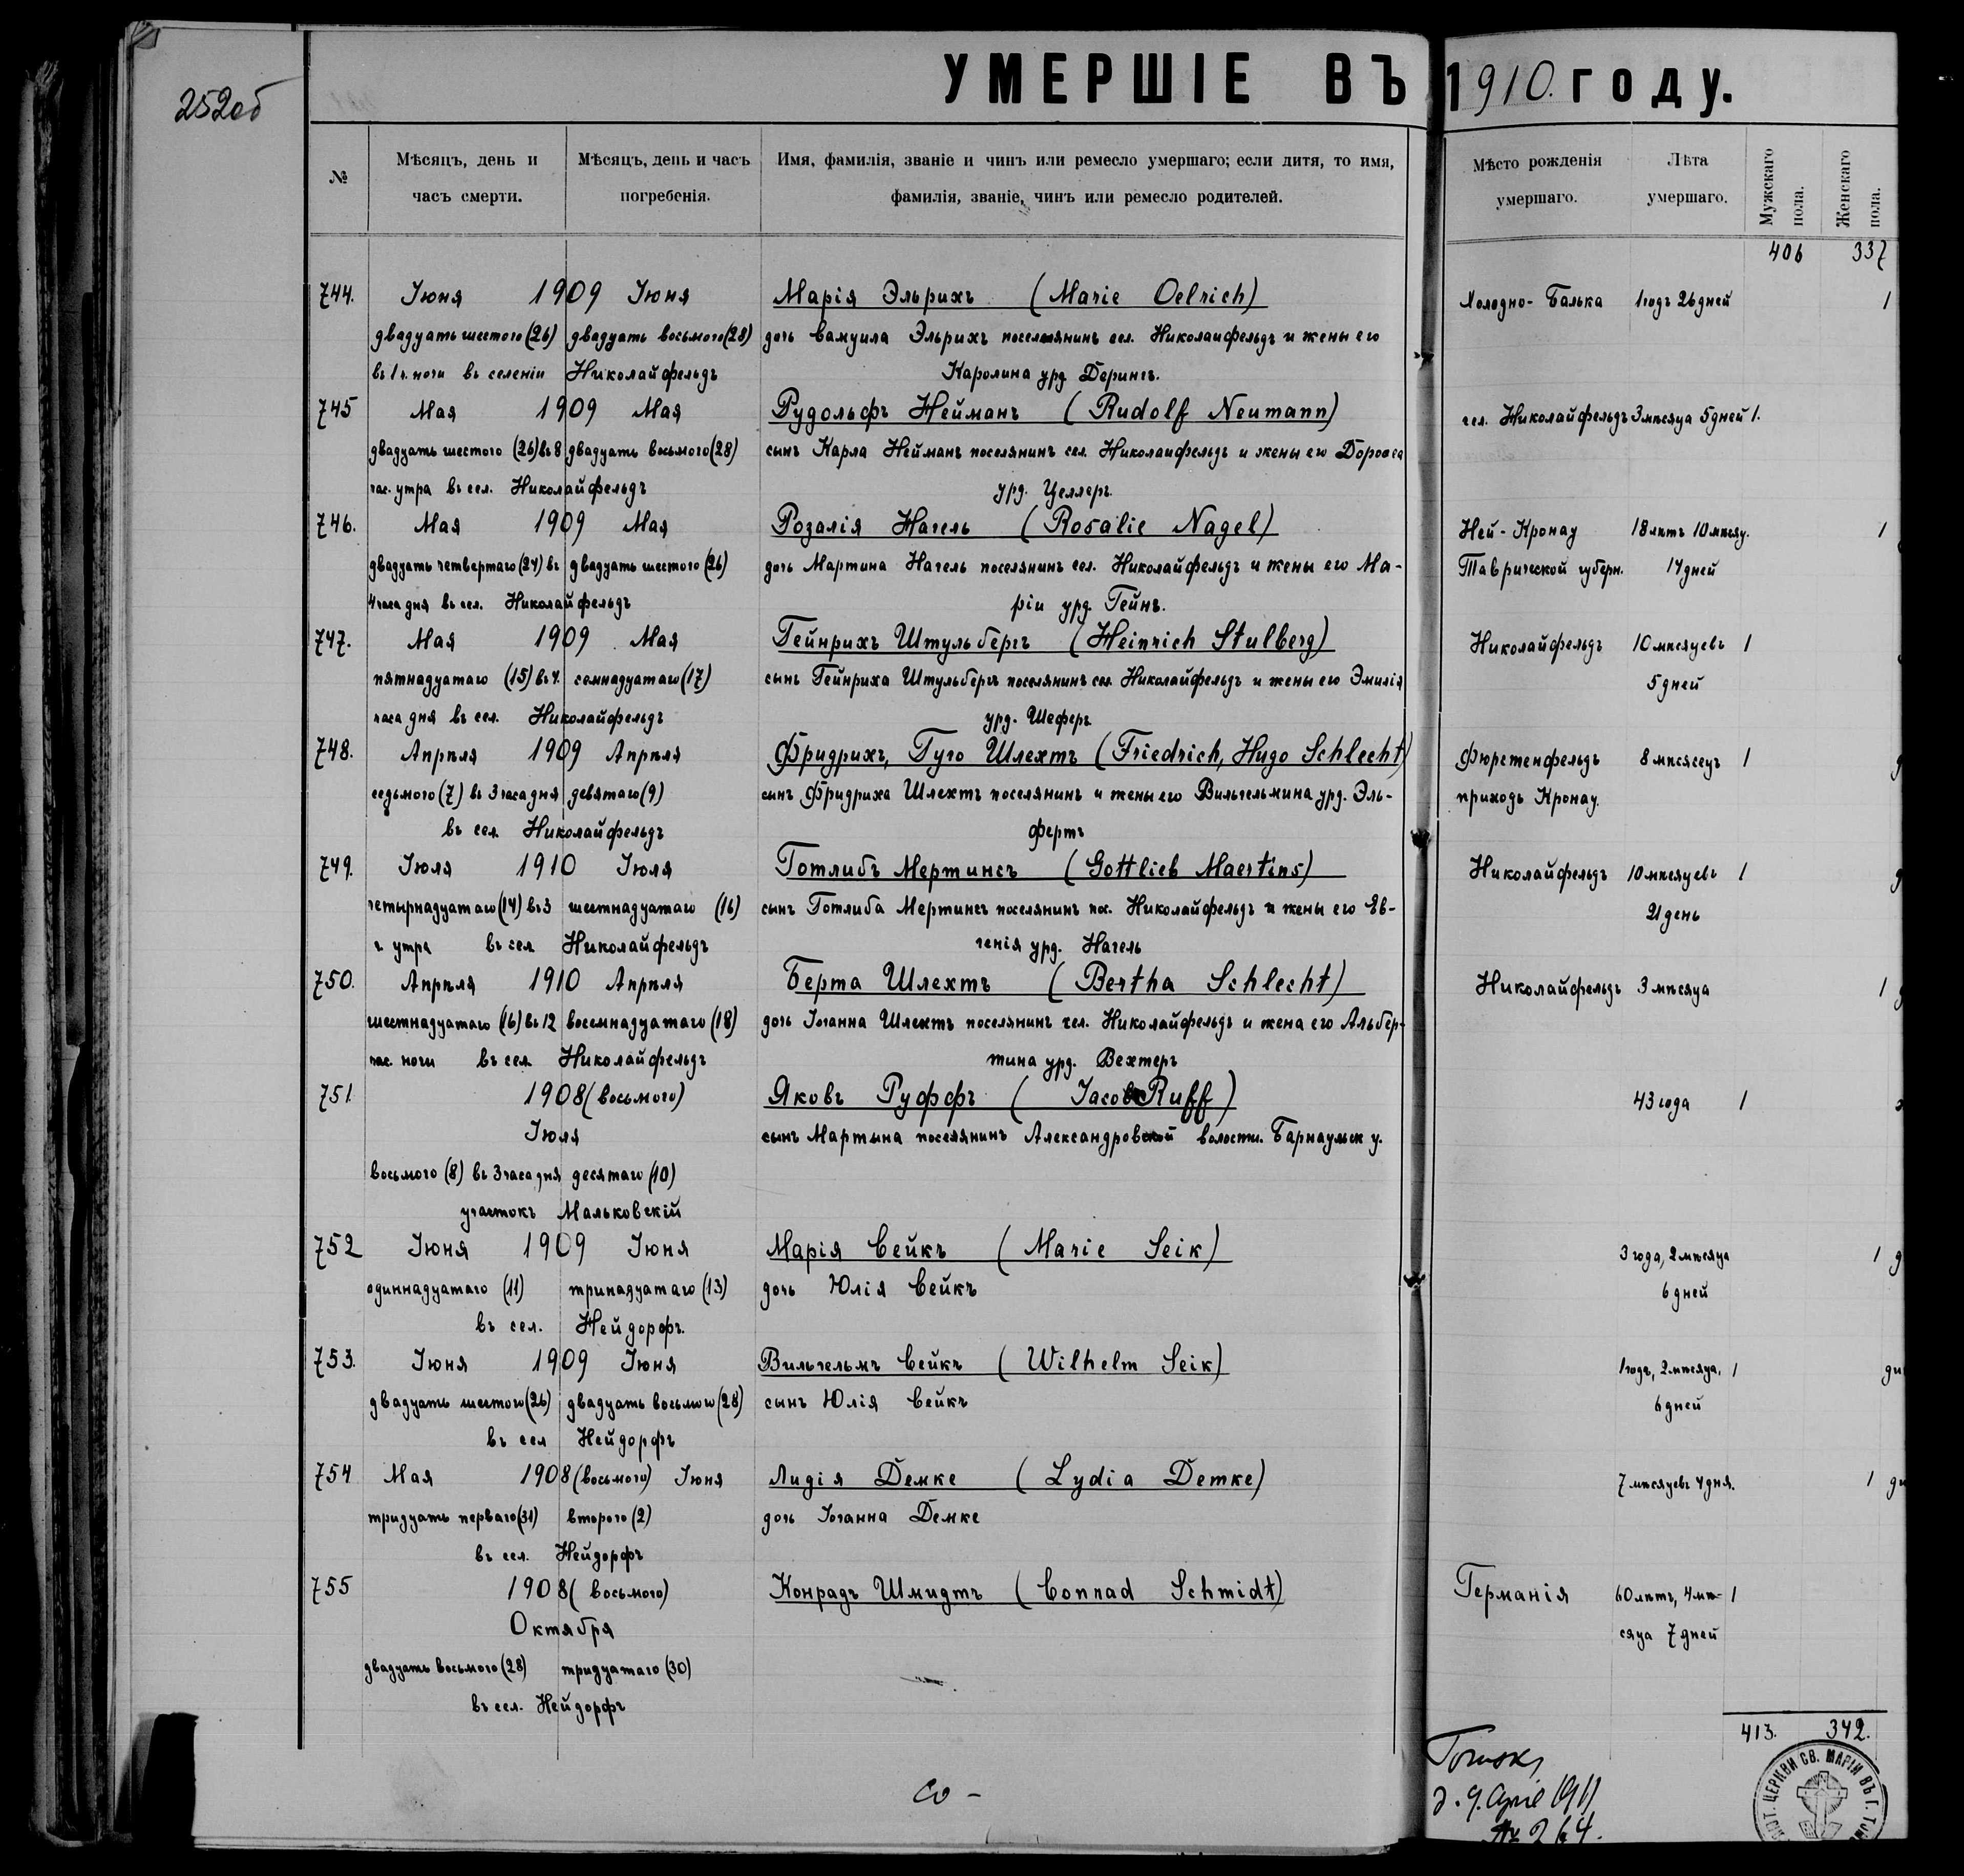 252об
УМЕРШІЕ ВЪ 1910. году.
№
Мѣсяцъ, день и часъ смерти.
Мѣсяцъ, день и часъ погребенія.
Имя, фамилія, званіе и чинъ или ремесло умершаго; если дитя, то имя, фамилія, званіе, чинъ или ремесло родителей.
Мѣсто рожденія умершаго.
Лѣта умершаго.
Мужскаго пола.
Женскаго пола.
406 337
744. Іюня 1909 Іюня Марія Эльрихъ (Marie Oelrich) Холодно-Балька 1 годъ 26 дней 1
двадцать шестого (26) двадцать восьмого (28) дочь Самуила Эльрихъ поселянинъ сел. Николайфельдъ и жены его
въ 1 ч. ночи въ селеніи Николайфельдъ Каролина урд. Дерингъ.
745 Мая 1909 Мая Рудольфъ Нейманъ (Rudolf Neumann) сел. Николайфельдъ 3 мѣсяца 5 дней 1.
двадцать шестого (26) въ 8 двадцать восьмого (28) сынъ Карла Нейманъ поселянинъ сел. Николайфельдъ и жены его Доротеа
час. утра въ сел. Николайфельдъ урд. Целлеръ.
746. Мая 1909 Мая Розалія Нагель (Rosalie Nagel) Ней-Кронау 18 лѣтъ 10 мѣсяц. 1
двадцать четвертаго (24) въ двадцать шестого (26) дочь Мартина Нагель поселянинъ сел. Николайфельдъ и жены его Ма- Таврической губерн. 14 дней
4 часа дня въ сел. Николайфельдъ ріи урд. Гейнъ.
747. Мая 1909 Мая Гейнрихъ Штульбергъ (Heinrich Stulberg) Николайфельдъ 10 мѣсяцевъ 1
пятнадцатаго (15) въ 4 семнадцатаго (17) сынъ Гейнриха Штульбергъ поселянинъ сел. Николайфельдъ и жены его Эмилія 5 дней
часа дня въ сел. Николайфельдъ урд. Шеферъ
748. Апрѣля 1909 Апрѣля Фридрихъ, Гуго Шлехтъ (Friedrich, Hugo Schlecht) Фюрстенфельдъ 8 мѣсяцевъ 1
седьмого (7) въ 3 часа дня девятаго (9) сынъ Фридриха Шлехтъ поселянинъ и жены его Вильгельмина урд. Эль- приходъ Кронау.
въ сел. Николайфельдъ фертъ
749. Іюля 1910 Іюля Готлибъ Мертинсъ (Gottlieb Maertins) Николайфельдъ 10 мѣсяцевъ 1
четырнадцатаго (14) въ 3 шестнадцатаго (16) сынъ Готлиба Мертинсъ поселянинъ пос. Николайфельдъ и жены его Ев- 21 день
ч утра въ сел Николайфельдъ генія урд. Нагель
750. Апрѣля 1910 Апрѣля Берта Шлехтъ (Bertha Schlecht) Николайфельдъ 3 мѣсяца 1
шестнадцатаго (16) въ 12 восемнадцатаго (18) дочь Іоганна Шлехтъ поселянинъ сел. Николайфельдъ и жена его Альбер-
час. ночи въ сел. Николайфельдъ тина урд. Вехтеръ
751. 1908 (восьмого) Яковъ Руффъ (Jacob Ruff) 43 года 1
Іюля сынъ Мартына поселянинъ Александровской волости. Барнаульск у.
восьмого (8) въ 3 часа дня десятаго (10)
участокъ Мальковскій
752 Іюня 1909 Іюня Марія Сейкъ (Marie Seik) 3 года, 2 мѣсяца 1
одиннадцатаго (11) тринадцатаго (13) дочь Юлія Сейкъ 6 дней
въ сел. Нейдорфъ.
753. Іюня 1909 Іюня Вильгельмъ Сейкъ (Wilhelm Seik) 1 годъ, 2 мѣсяца, 1
двадцать шестого (26) двадцать восьмого (28) сынъ Юлія Сейкъ 6 дней
въ сел Нейдорфъ
754 Мая 1908 (восьмого) Іюня Лидія Демке (Lydia Demke) 7 мѣсяцевъ 4 дня. 1
тридцать перваго (31) второго (2) дочь Іоганна Демке
въ сел. Нейдорфъ
755 1908 (восьмого) Конрадъ Шмидтъ (Conrad Schmidt) Германія 60 лѣтъ, 4 мѣ- 1
Октября сяца 7 дней
двадцать восьмого (28) тридцатаго (30)
въ сел. Нейдорфъ
413. 342.
Tomsk,
d. 9. April 1911
№ 264.
ЦЕРКВИ СВ. МАРІИ ВЪ Г.